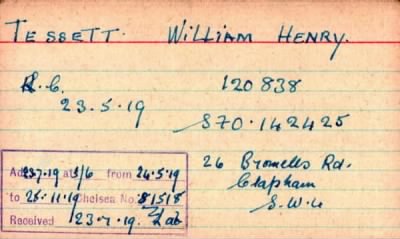 TESSETT. WILLIAM HENRY.
R.C. 120838
23.5.19
S70.142425
26 Bromells Rd.
Clapham
S.W.4
Ad 23.7.19 at 5/6 from 24.5.19
to 25.11.19 Chelsea No. 81518
Received 23.7.19.